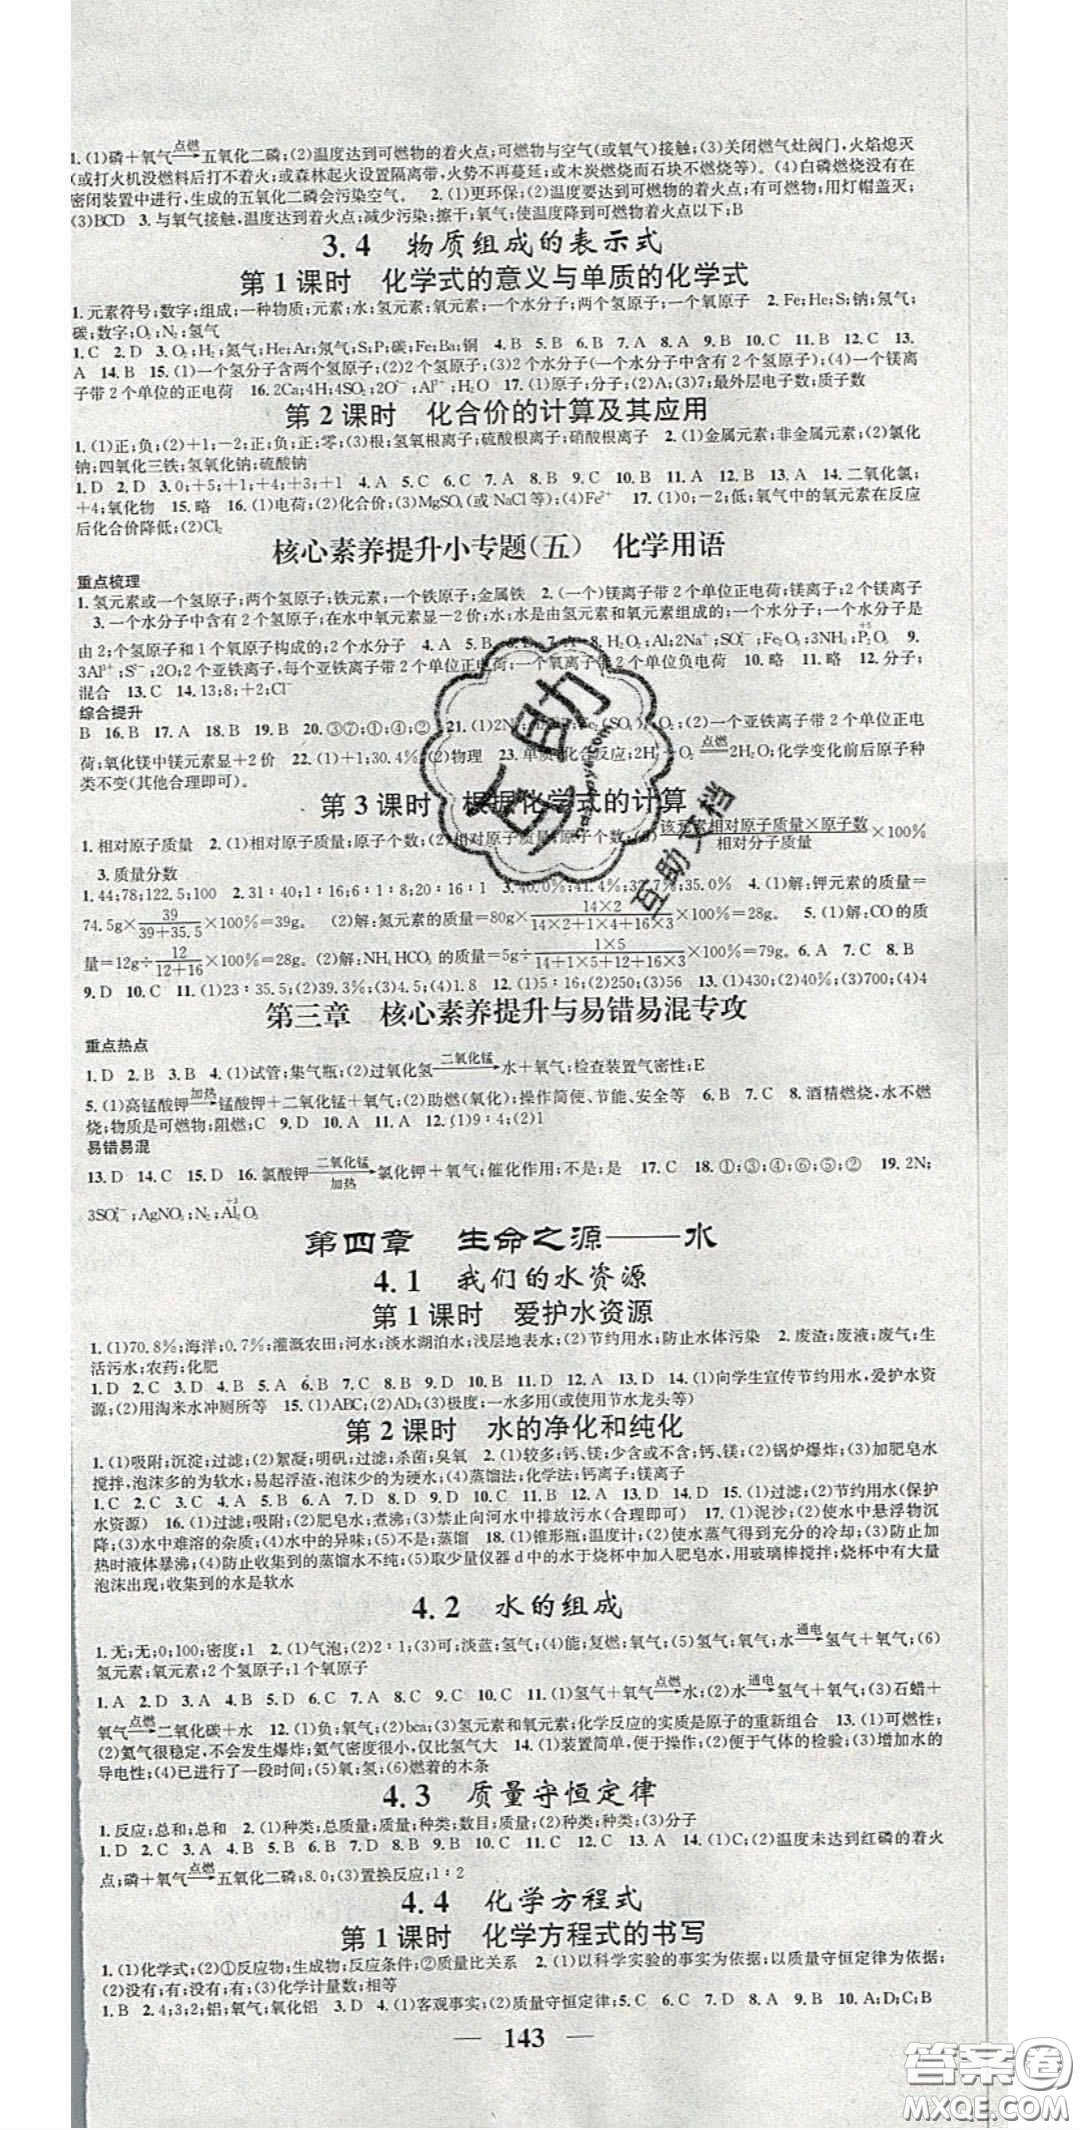 1. (1)磷＋氧气 —点燃→ 五氧化二磷;(2)温度达到可燃物的着火点;可燃物与空气(或氧气)接触;(3)关闭燃气灶阀门,火焰熄灭
(或打火机没燃料后打不着火;或森林起火设置隔离带,火势不再蔓延;或木炭燃烧而石块不燃烧等)。(4)白磷燃烧应在
密闭装置中进行,生成的五氧化二磷会污染空气。 2. (1)更环保;(2)温度要达到可燃物的着火点,有可燃物;用灯帽盖灭;
(3)BCD 3. 与氧气接触,温度达到着火点;减少污染;擦干;氧气;使温度降到可燃物着火点以下;B
3.4 物质组成的表示式
第1课时 化学式的意义与单质的化学式
1. 元素符号;数字;组成;一种物质;元素;水;氢元素;氧元素;一个水分子;两个氢原子;一个氧原子 2. Fe;He;S;钠;氖气;
碳;数字;O₂;N₂;氢气
1. C 2. D 3. O₂;H₂;氮气;He;Ar;氖气;S;P;碳;Fe;Ba;铜 4. B 5. B 6. B 7. A 8. A 9. B 10. C 11. B 12. C 13.
A 14. B 15. (1)一个氢分子含两个氢原子;(2)2个氢原子;(3)2个水分子(一个水分子中含有2个氢原子);(4)一个镁离
子带2个单位的正电荷 16. 2Ca;4H;4SO₂;2O²⁻;Al³⁺;H₂O 17. (1)原子;分子;(2)A;(3)7;最外层电子数;质子数
第2课时 化合价的计算及其应用
1. (1)正;负;(2)+1;-2;正;负;正;零;(3)根;氢氧根离子;硫酸根离子;硝酸根离子 2. (1)金属元素;非金属元素;(2)氯化
钠;四氧化三铁;氢氧化钠;硫酸钠
1. D 2. D 3. 0;+5;+1;+4;+3;+1 4. A 5. C 6. C 7. A 8. B 9. B 10. B 11. A 12. B 13. A 14. 二氧化氯;
+4;氧化物 15. 略 16. (1)电荷;(2)化合价;(3)MgSO₄(或NaCl等);(4)Fe²⁺ 17. (1)0;-2;低;氧气中的氧元素在反应
后化合价降低;(2)Cl₂
核心素养提升小专题(五) 化学用语
重点梳理
1. 氢元素或一个氢原子;两个氢原子;铁元素;一个铁原子;金属铁 2. (一个)镁离子带2个单位正电荷;镁离子;2个镁离子
3. 一个水分子中含有2个氢原子;在水中氧元素显-2价;水;水是由氢元素和氧元素组成的;一个水分子;一个水分子是
由2;个氢原子和1个氧原子构成的;2个水分子 4. A 5. B 6. D 7. A 8. H₂O₂;Al;2Na⁺;SO₄²⁻;Fe₂O₃;3NH₄;P₂O₅ 9.
3Al³⁺;S²⁻;2O;2个亚铁离子,每个亚铁离子带2个单位正电荷;一个氧离子带2个单位负电荷 10. 略 11. 略 12. 分子;
混合 13. C 14. 13;8;+2;Cl⁻
综合提升
B 16. B 17. A 18. B 19. B 20. ③⑦;①;④;② 21. (1)2N (SO₄) O₂;(2)一个亚铁离子带2个单位正电
荷;氧化镁中镁元素显+2价 22. (1)+1;30.4%;(2)物理 23. 单质;化合反应;2H₂+O₂ —点燃— 2H₂O;化学变化前后原子种
类不变(其他合理即可)。
第3课时 根据化学式的计算
1. 相对原子质量 2. (1)相对原子质量;原子个数;(2)相对原子质量;原子个数;(3) 该元素相对原子质量×原子数/相对分子质量 ×100%
3. 质量分数
1. 44;78;122.5;100 2. 31∶40;1∶16;6∶1∶8;20∶16∶1 3. 40.0%;41.4%;32.7%;35.0% 4. (1)解:钾元素的质量=
74.5g× 39/(39+35.5) ×100%=39g。 (2)解:氮元素的质量=80g× (14×2)/(14×2+1×4+16×3) ×100%=28g。 5. (1)解:CO的质
量=12g÷ 12/(12+16) ×100%=28g。(2)解:NH₄HCO₃的质量=5g÷ (1×5)/(14+1×5+12+16×3) ×100%=79g。 6. A 7. C 8. B
9. D 10. C 11. (1)23∶35.5;(2)39.3%;(3)4.5;(4)1.8 12. (1)5∶16;(2)250;(3)54 13. (1)430;(2)40%;(3)700;(4)4
第三章 核心素养提升与易错易混专攻
重点热点
1. D 2. B 3. B 4. (1)试管;集气瓶;(2)过氧化氢 —二氧化锰→ 水＋氧气;检查装置气密性;E
5. (1)高锰酸钾 —加热→ 锰酸钾＋二氧化锰＋氧气;(2)助燃(氧化);操作简便、节能、安全等 6. B 7. C 8. 酒精燃烧,水不燃
烧;物质是可燃物;阻燃;C 9. D 10. A 11. A 12. (1)9∶4;(2)1
易错易混
13. D 14. C 15. D 16. 氯酸钾 —二氧化锰/加热→ 氯化钾＋氧气;催化作用;不是;是 17. C 18. ①;③;④;⑥;⑤;② 19. 2N;
3SO₄²⁻;AgNO₃;N₂;Al₂O₃
第四章 生命之源——水
4.1 我们的水资源
第1课时 爱护水资源
1. (1)70.8%;海洋;0.7%;灌溉农田;河水;淡水湖泊水;浅层地表水;(2)节约用水;防止水体污染 2. 废渣;废液;废气;生
活污水;农药;化肥
1. D 2. D 3. C 4. B 5. A 6. B 7. B 8. D 9. D 10. B 11. D 12. D 13. D 14. (1)向学生宣传节约用水,爱护水资
源;(2)用淘米水冲厕所等 15. (1)ABC;(2)AD;(3)极度;一水多用(或使用节水龙头等)
第2课时 水的净化和纯化
1. (1)吸附;沉淀;过滤;(2)絮凝;明矾;过滤;杀菌;臭氧 2. (1)较多;钙、镁;少含或不含;钙、镁;(2)锅炉爆炸;(3)加肥皂水
搅拌,泡沫多的为软水;易起浮渣,泡沫少的为硬水;(4)蒸馏法;化学法;钙离子;镁离子
1. C 2. C 3. C 4. D 5. B 6. C 7. B 8. C 9. D 10. C 11. B 12. C 13. D 14. D 15. (1)过滤;(2)节约用水(保护
水资源) 16. (1)过滤;吸附;(2)肥皂水;煮沸;(3)禁止向河水中排放污水(合理即可) 17. (1)泥沙;(2)使水中悬浮物沉
降;(3)水中难溶的杂质;(4)水中的异味;(5)不是;蒸馏 18. (1)锥形瓶;温度计;(2)使水蒸气得到充分的冷却;(3)防止加
热时液体暴沸;(4)防止收集到的蒸馏水不纯;(5)取少量仪器d中的水于烧杯中加入肥皂水,用玻璃棒搅拌;烧杯中有大量
泡沫出现;收集到的水是软水
4.2 水的组成
1. 无;无;0;100;密度;1 2. (1)气泡;(2)2∶1;(3)可;淡蓝;氢气;(4)能;复燃;氧气;(5)氢气;氧气;水 —通电→ 氢气＋氧气;(6)
氢元素;氧元素;2个氢原子;1个氧原子
1. A 2. D 3. A 4. D 5. C 6. C 7. A 8. B 9. C 10. C 11. (1)氢气＋氧气 —点燃→ 水;(2)水 —通电→ 氢气＋氧气;(3)石蜡＋
氧气 —点燃→ 二氧化碳＋水 12. (1)负;氧气;(2)bca;(3)氢元素和氧元素;化学反应的实质是原子的重新组合 13. (1)可燃性;
(2)氦气很稳定,不会发生爆炸;氦气密度很小,仅比氢气大 14. (1)装置简单,便于操作;(2)便于气体的检验;(3)增加水的
导电性;(4)已进行了一段时间;(5)氧;氢;(6)燃着的木条
4.3 质量守恒定律
1. 反应;总和;总和 2. (1)种类;总质量;质量;种类;数目;质量;(2)种类;种类;(3)分子
1. D 2. C 3. A 4. C 5. C 6. B 7. D 8. B 9. B 10. D 11. D 12. B 13. A 14. (1)C;(2)温度未达到红磷的着火
点;磷＋氧气 —点燃→ 五氧化二磷;8.0;(3)置换反应;1∶2
4.4 化学方程式
第1课时 化学方程式的书写
1. (1)化学式;(2)①反应物;生成物;反应条件;②质量比关系 2. (1)以科学实验的事实为依据;以质量守恒定律为依据;
(2)没有;有;没有;有;(3)化学计量数;相等
1. B 2. 4;3;2;铝;氧气;氧化铝 3. D 4. (1)客观事实;(2)质量守恒定律;5. C 6. C 7. D 8. B 9. B 10. A;D;C;B
— 143 —
互助文档
答案圈
MXQE.COM